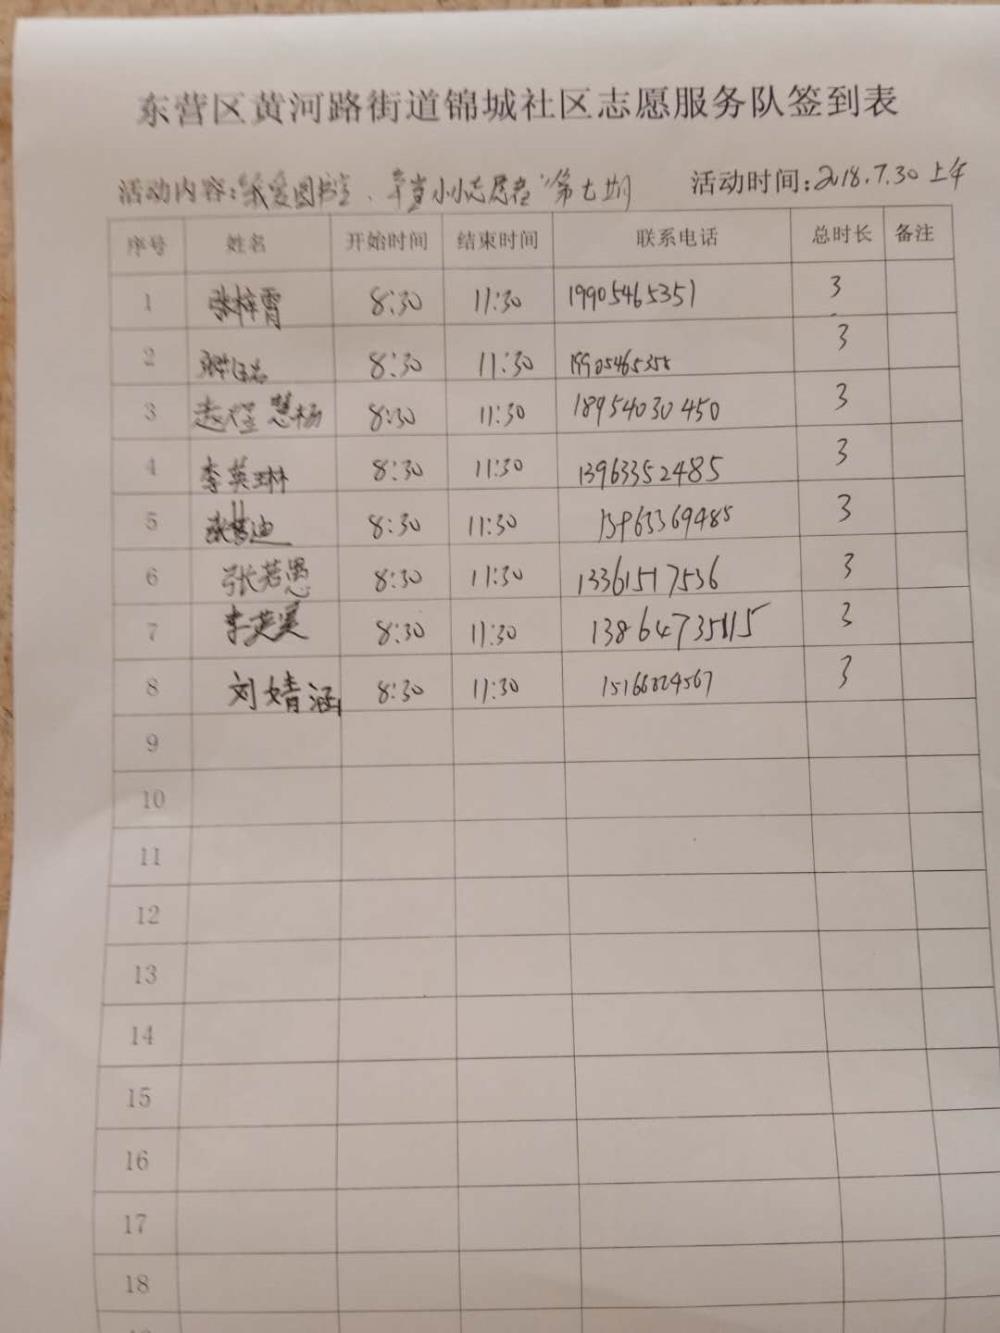 东营区黄河路街道锦城社区志愿服务队签到表
活动内容:"我爱图书室、争当小小志愿者"第七期 活动时间:2018.7.30上午
序号 姓名 开始时间 结束时间 联系电话 总时长 备注
1 张梓霄 8:30 11:30 19905465351 3
2 8:30 11:30 3
3 慧杨 8:30 11:30 18954030450 3
4 李英琳 8:30 11:30 13963352485 3
5 8:30 11:30 13963369485 3
6 张若愚 8:30 11:30 13361517536 3
7 8:30 11:30 3
8 刘婧涵 8:30 11:30 3
9
10
11
12
13
14
15
16
17
18